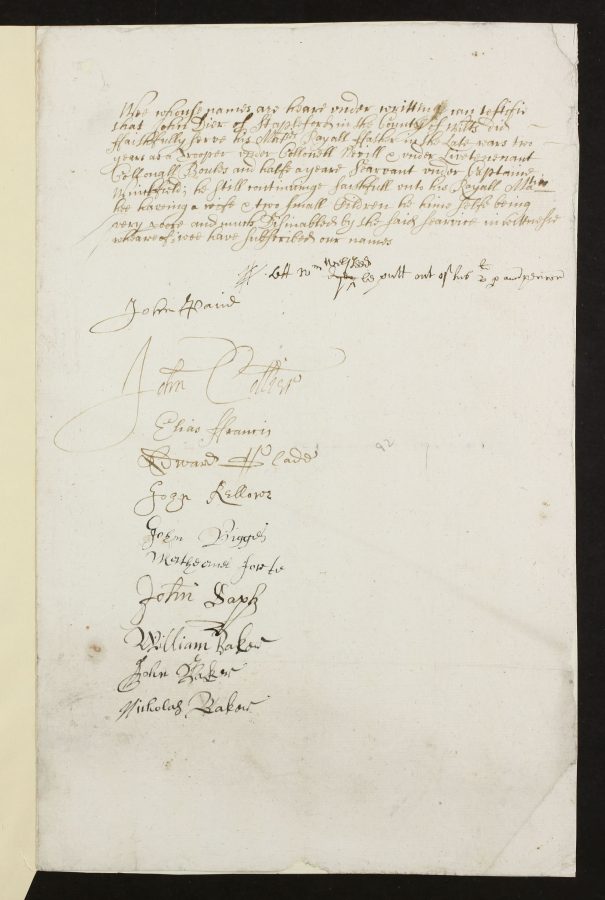 Wee whouse names are heare under writting can testifie
that John Dier of Stapleford in the County of Wilts did
ffaithfully serve his Maties Royall ffather in the Late wars two
years as a Trooper under Collonell &amp; under Livetennant
Collonall Bowles and halfe a yeare Searvant under Captaine
he still continuinge faithfull unto his Royall Matie
hee having a wife &amp; two small Children he him selfe being
very poore and much disinabled by the said searvice in witnesse
wheareof wee have subscribed our names
Lett Wm be putt out of his &amp;
John
John Collier
Elias ffrancis
Edward Slade
John Kellowe
John Bigges
John
William Baker
John Baker
Nicholas Baker
92